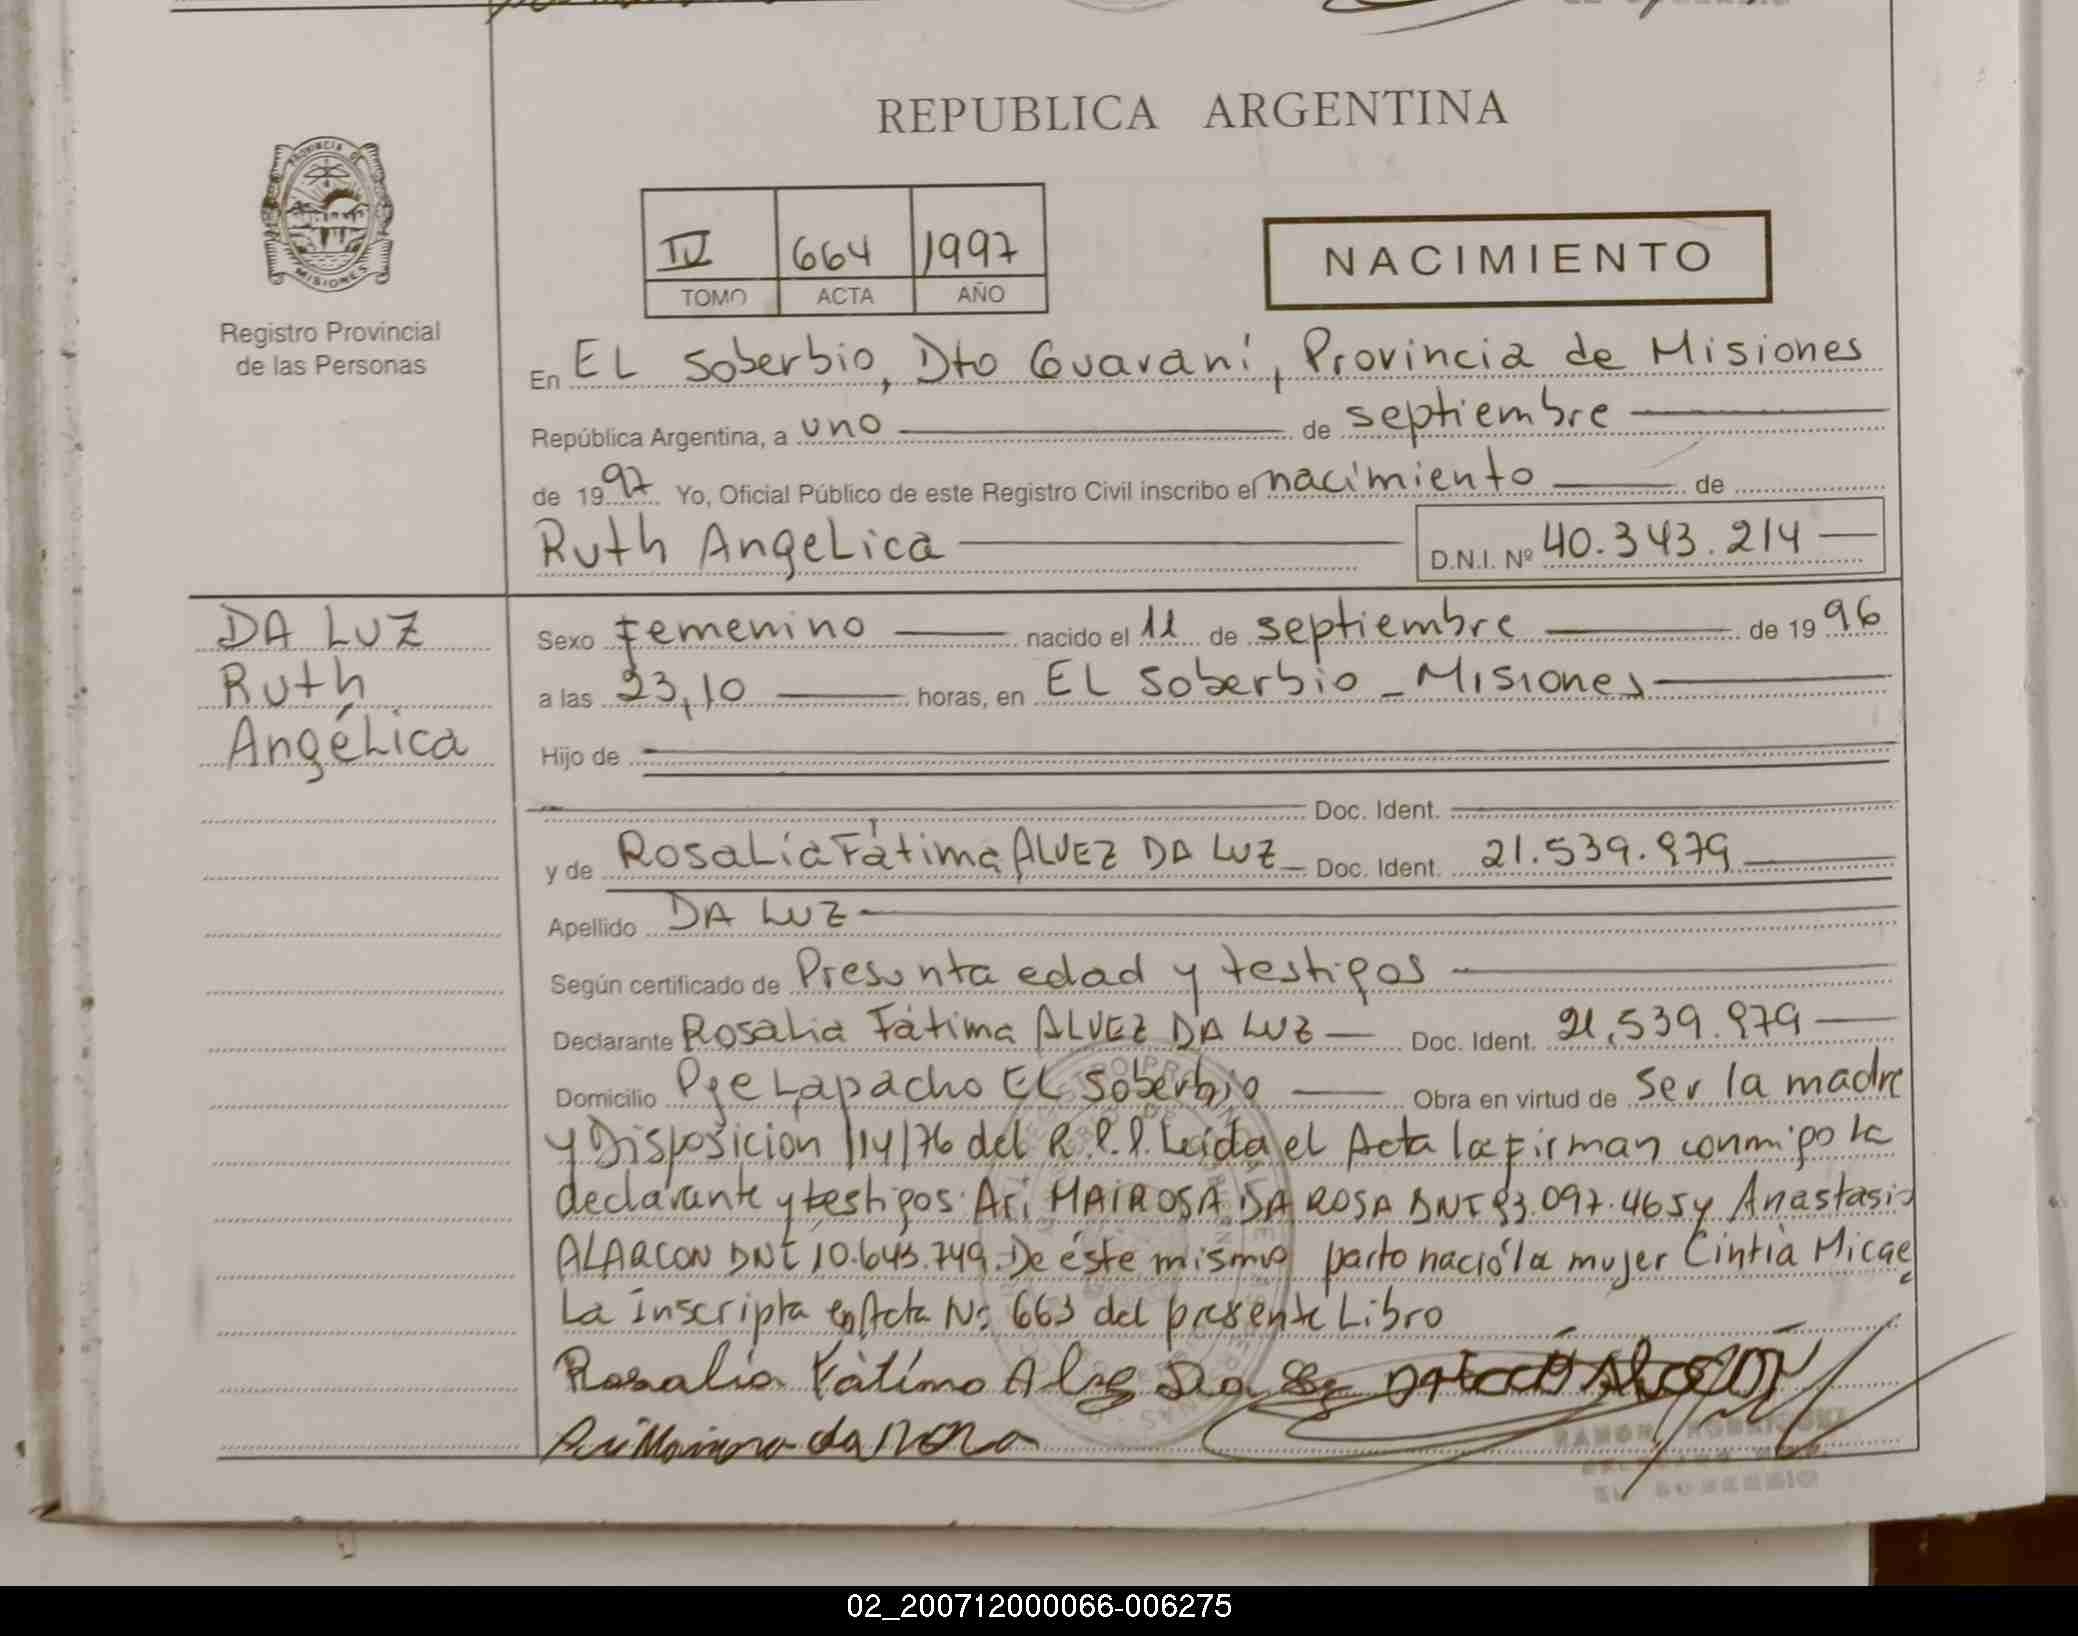 REPUBLICA ARGENTINA
PROVINCIA DE
MISIONES
Registro Provincial
de las Personas
IV 664 1997
TOMO ACTA AÑO
NACIMIENTO
En EL Soberbio, Dto Guaraní, Provincia de Misiones
República Argentina, a uno de septiembre
de 1997 Yo, Oficial Público de este Registro Civil inscribo el nacimiento de
Ruth AngeLica D.N.I. Nº 40.343.214
DA LUZ
Ruth
AngéLica
Sexo Femenino nacido el 11 de septiembre de 1996
a las 23,10 horas, en EL Soberbio - Misiones
Hijo de
Doc. Ident.
y de RosaLía Fátima ALVEZ DA LUZ Doc. Ident. 21.539.979
Apellido DA LUZ
Según certificado de Presunta edad y testigos
Declarante Rosalia Fátima ALVEZ DA LUZ Doc. Ident. 21.539.979
Domicilio Pje Lapacho EL Soberbio Obra en virtud de Ser la madre
y Disposicion 114/76 del R.P.P. Leida el Acta la firman conmigo la
declarante y testigos: Ari MAIROSA DA ROSA DNI 93.097.465 y Anastasio
ALARCON DNI 10.643.749. De éste mismo parto nació la mujer Cintia Micae
La inscripta en Acta Nº 663 del presente Libro
Rosalia Fátima
da Rosa
RAMON RODRIGUEZ
EL SOBERBIO
02_200712000066-006275